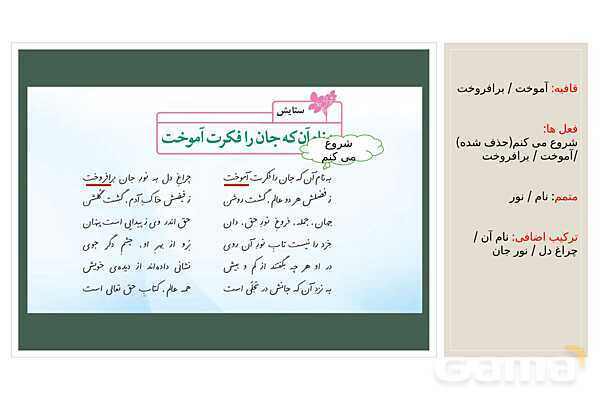 ستایش
به نام آن که جان را فکرت آموخت
شروع
می کنم
به نام آن که جان را فکرت آموخت چراغ دل به نور جان برافروخت
ز فضلش هر دو عالم گشت روشن ز فیضش خاک آدم گشت گلشن
جهان، جمله، فروغ نور حق، دان حق اندر وی ز پیدایی است پنهان
خرد را نیست تاب نور آن روی برو از بهر او، چشم دگر جوی
در او هر چه بگفتند از کم و بیش نشانی داده‌اند از دیده‌ی خویش
به نزد آن که جانش در تجلّی است همه عالم، کتاب حق تعالی است
قافیه: آموخت / برافروخت
فعل ها:
شروع می کنم(حذف شده)
/آموخت / برافروخت
متمم: نام / نور
ترکیب اضافی: نام آن /
چراغ دل / نور جان
Gama